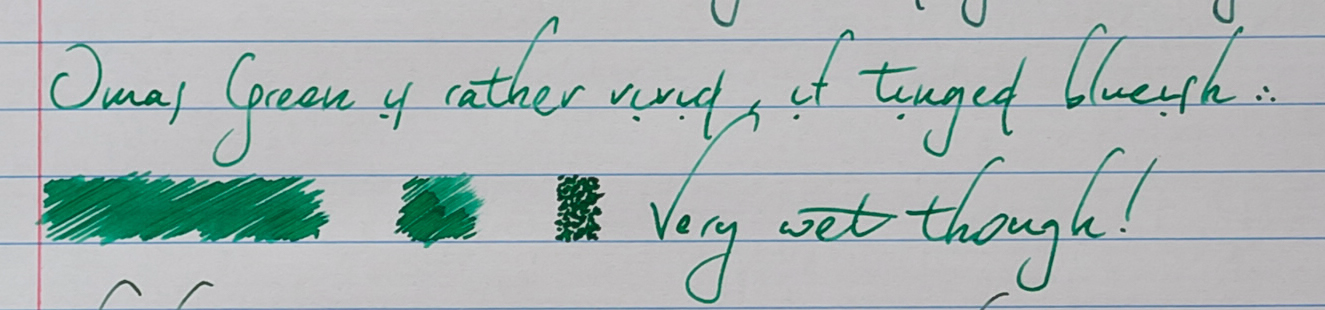 Omas Green is rather vivid, if tinged blueish ∴
Very wet though!